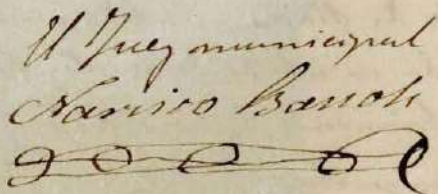 El Juez municipal
Narciso Bañols